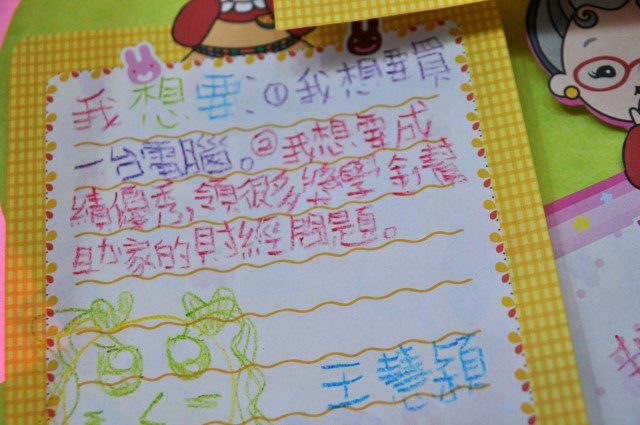 我想要:①我想要買
一台電腦。②我想要成
績優秀,領很多獎學金幫
助家的財經問題。
王慧穎